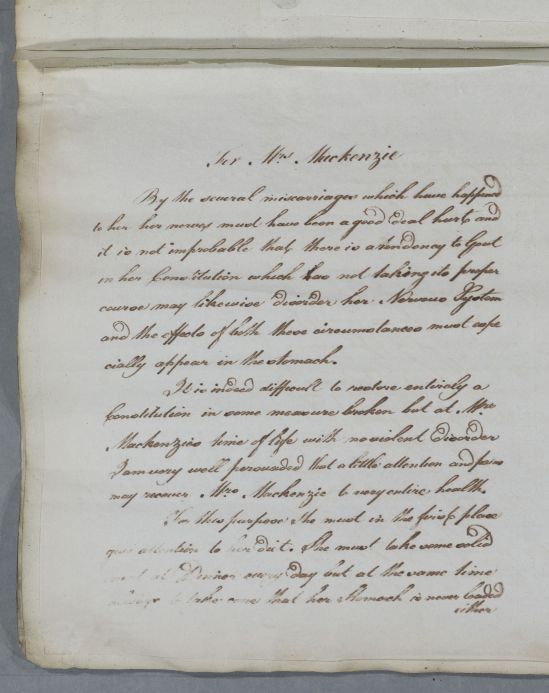 For Mrs. Mackenzie
By the several miscarriages which have happend
to her her nerves must have been a good deal hurt and
it is not improbable that there is a tendency to Gout
in her Constitution which has not taking its proper
course may likewise disorder her Nervous System
and the effects of both these circumstances must espe
cially appear in the stomach.
It is indeed difficult to restore entirely a
Constitution in some measure broken but at Mrs
Mackenzies time of life with no violent Disorder
I am very well perswaded that a little attention and
may recover Mrs Mackenzie to very entire health.
For this purpose She must in the first place
give attention to her diet. She must take some solid
meat at Dinner every day but at the same time
always to take care that her Stomach is never loaded
either